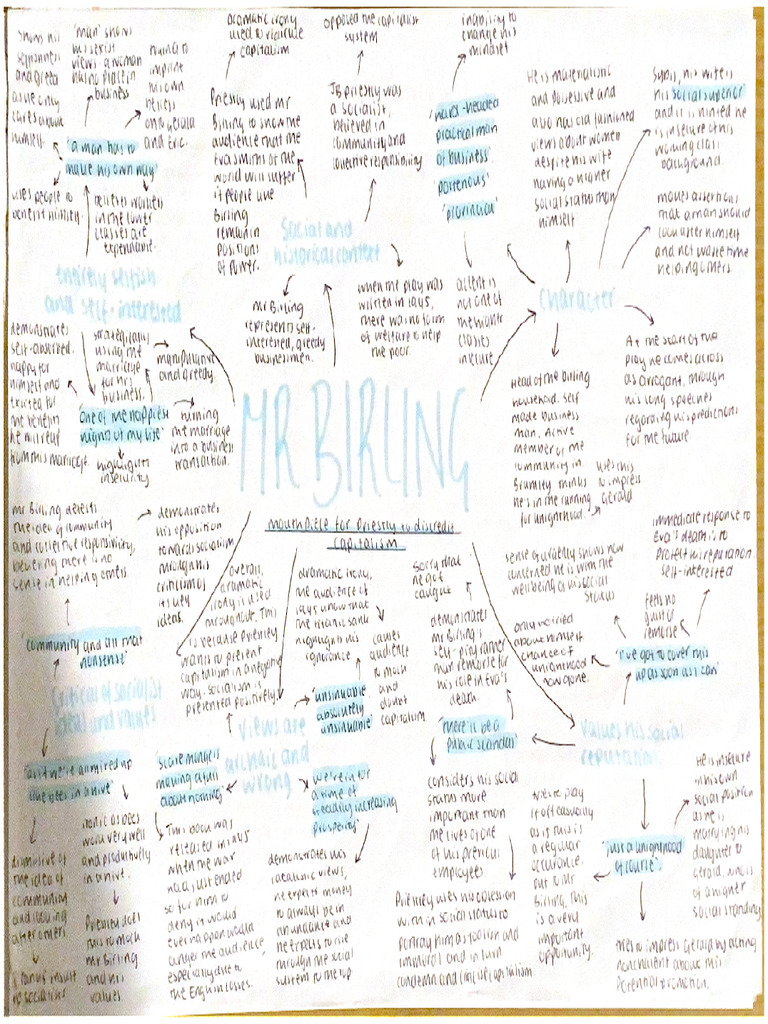 shows his
selfishness
and greed
as he only
cares about
himself.
'man' shows
his sexist
views - a woman
has no place in
business
trying to
imprint
his own
beliefs
onto Gerald
and Eric.
'a man has to
make his own way'
uses people to
benefit himself.
believes workers
in the lower
classes are
expendable.
entirely selfish
and self-interested
demonstrates
self-absorbed.
happy for
himself and
excited for
the benefits
he will reap
from this marriage.
strategically
using the
marriage
for his
business.
manipulative
and greedy.
'One of the happiest
nights of my life'
turning
the marriage
into a business
transaction.
highlights
insecurity
dramatic irony
used to ridicule
capitalism
Priestly used Mr
Birling to show the
audience that the
Eva Smiths of the
world will suffer
if people like
Birling
remain in
positions
of power.
opposed the capitalist
system
JB Priestly was
a socialist,
believed in
community and
collective responsibility
Social and
historical context
Mr Birling
represents self-
interested, greedy
businessmen.
when the play was
written in 1945,
there was no form
of welfare to help
the poor.
inability to
change his
mindset
'hard-headed
practical man
of business'
'portenous'
'provincial'
accent is
not one of
the higher
classes
insecure
He is materialistic
and possessive and
also has old fashioned
views about women
despite his wife
having a higher
social status than
himself
Sybil, his wife is
his 'social superior'
and it is hinted he
is insecure of his
working class
background.
makes assertions
that a man should
look after himself
and not waste time
helping others.
Character
Head of the Birling
household. Self
made business
man. Active
member of the
community in
Brumley, thinks
he's in the running
for knighthood.
uses this
to impress
Gerald
At the start of the
play he comes across
as arrogant, through
his long speeches
regarding his predictions
for the future
MR BIRLING
mouthpiece for Priestly to discredit
capitalism
Mr Birling detests
the idea of community
and collective responsibility,
believing there is no
sense in helping others.
demonstrates
his opposition
towards socialism
through his
criticism of
its key
ideas.
'community and all that
nonsense'
Critical of socialist
ideal and values
'as if we're all mixed up
like bees in a hive'
dismissive of
the idea of
community
and looking
after others
ironic as bees
work very well
and productively
in a hive.
Priestly does
this to mock
Mr Birling
and his
values.
overall,
dramatic
irony is used
throughout. This
is because Priestly
wants to present
capitalism in a negative
way. Socialism is
presented positively.
dramatic irony,
the audience of
1945 know that
the titanic sank
highlights his
ignorance
causes
audience
to mock
and
doubt
capitalism
'unsinkable,
absolutely
unsinkable'
Views are
archaic and
wrong
'scaremongers
making a fuss
about nothing'
This book was
released in 1945
when the war
had just ended
so for him to
deny it would
ever happen would
anger the audience,
especially due to
the English losses.
'we're in for
a time of
steadily increasing
prosperity'
demonstrates his
idealistic views,
he expects money
to always be in
abundance and
he expects to rise
through the social
system to the top.
sorry that
he got
caught
demonstrates
Mr Birling's
self-pity rather
than remorse for
his role in Eva's
death.
'there'll be a
public scandal'
considers his social
status more
important than
the lives of one
of his previous
employees
Priestly uses his obsession
with social status to
portray him as foolish and
immoral and in turn
condemn and criticise capitalism.
sense of urgency shows how
concerned he is with the
wellbeing of his social
status
only worried
about himself
chance of
knighthood
now gone.
immediate response to
Eva's death is to
protect his reputation
self-interested
feels no
guilt or
remorse
'I've got to cover this
up as soon as I can'
Values his social
reputation
'just a knighthood
of course'.
tries to play
it off casually
as if this is
a regular
occurance.
but to Mr
Birling, this
is a very
important
opportunity.
He is insecure
in his own
social position
as he is
marrying his
daughter to
Gerald, who is
of a higher
social standing
tries to impress Gerald by acting
nonchalant about his
potential promotion.